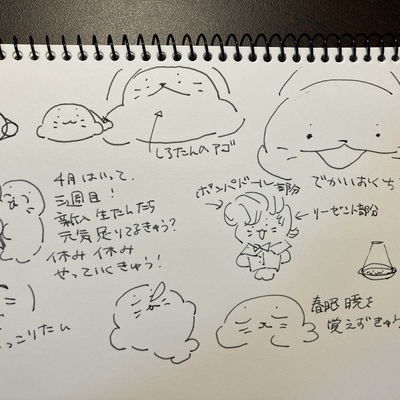 しろたんのアゴ
4月はいって、
三週目!
新入生たんたち
元気足りてるきゅう?
休み休み
やっていくきゅう!
ポンパドール部分
リーゼント部分
でかいおくち
春眠暁を
覚えずきゅう
っこりたん